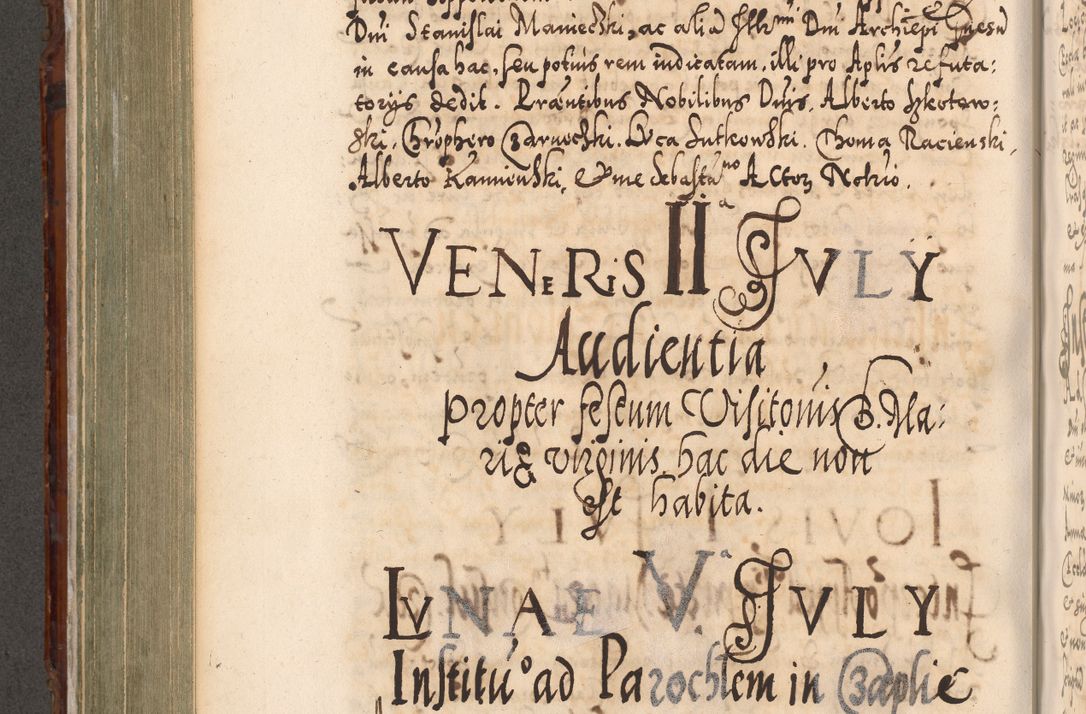 Dni Stanislai Maniecżki, ac alia Illmi Dni Archiepi Gnesn
in causa hac, seu potius rem indicatam, illi pro Aplis refuta:
torijs dedit. Praentibus Nobilibus Dnis, Alberto Szkotow:
ski, Chrophero Czarnocżki. Luca Lutkowski. Thoma Racienski,
Alberto Kamionski, & me Sebastano Actor Notrio.
VENERIS II a JULY
Audientia
propter festum Visitonis B. Ma:
riae virginis hac die non
est habita.
LUNAE V a JULY
Institu o ad Parochlem in Czaplie